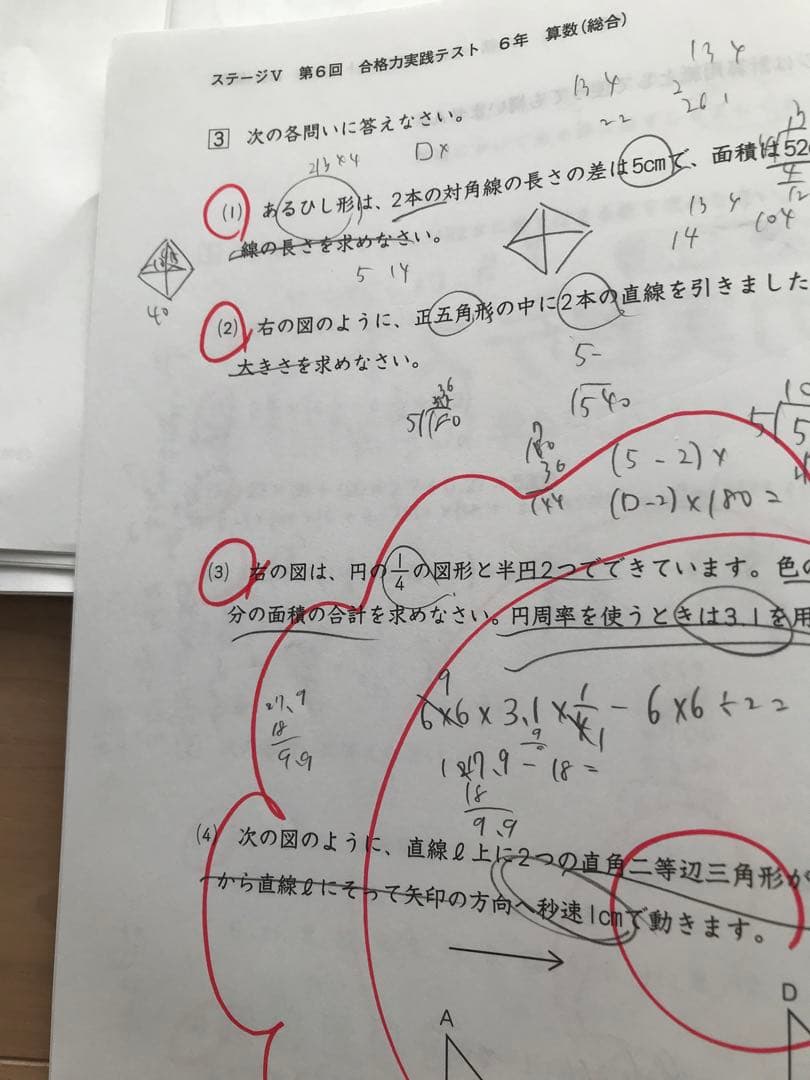 ステージⅤ 第6回 合格力実践テスト 6年 算数(総合)
13 4
13 4
22
3 次の各問いに答えなさい。
213×4
(1) あるひし形は、2本の対角線の長さの差は5cmで、面積は520
線の長さを求めなさい。
13 4
14
104
40
5 14
(2) 右の図のように、正五角形の中に2本の直線を引きました
大きさを求めなさい。
5-
540
36
5 180
180
36
144
(5-2)×
(D-2)×180=
(3) 右の図は、円の1/4の図形と半円2つでできています。色の
分の面積の合計を求めなさい。円周率を使うときは3.1を用
6×6×3.1×1/4-6×6÷2=
27.9
18
9.9
27.9-18=
18
9.9
(4) 次の図のように、直線ℓ上に2つの直角二等辺三角形が
から直線ℓにそって矢印の方向へ秒速1cmで動きます。
A
D